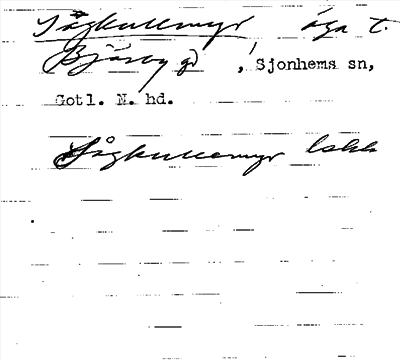 Sågkullemyr äga t.
Bjärby gd, Sjonhems sn,
Gotl. N. hd.
Sågkullemyr lskk